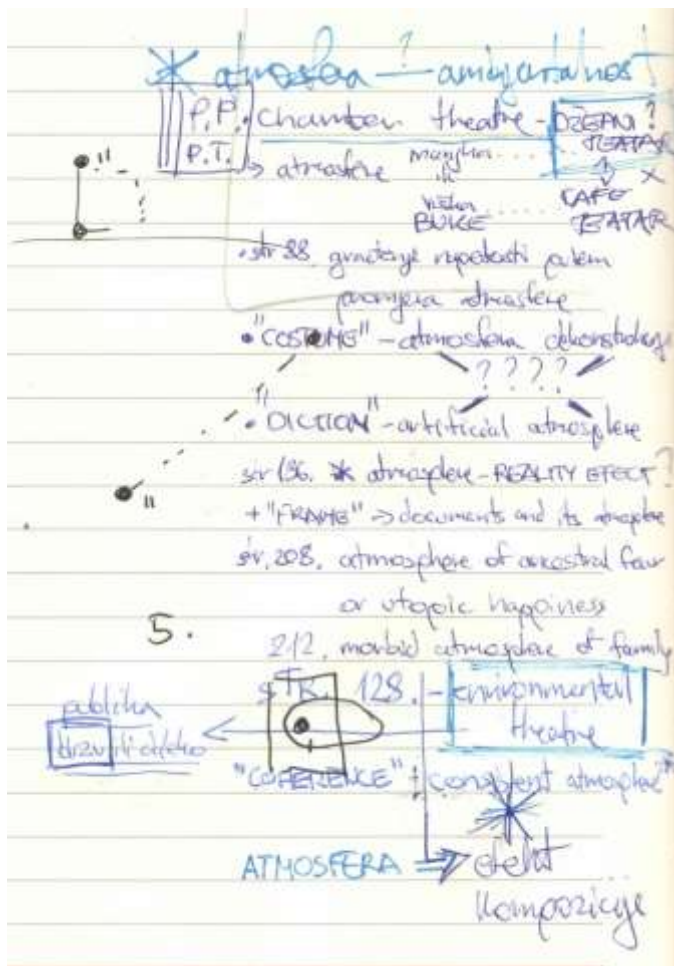 * atmosfera ? — ambijentalnost!
P.P. • chamber theatre - DŽEPNI ?
P.T. TEATAR
→ atmosfere
ili X
CAFE
BUKE ..... TEATAR
• str 88 građenje napetosti putem
promjena atmosfere
• "COSTUME" - atmosfera dekonstrukcije
? ? ? ?
• "DICTION" - artificial atmosphere
str 196. * atmosphere - REALITY EFECT ?
+ "FRAME" → documents and its atmosphere
str. 208. atmosphere of ancestral fear
or utopic happiness
5.
212. morbid atmosphere of family
STR. 128. - environmental
theatre
publika
"COHERENCE" + consistent atmosphere"
*
ATMOSFERA ⇒ efekt
kompozicije